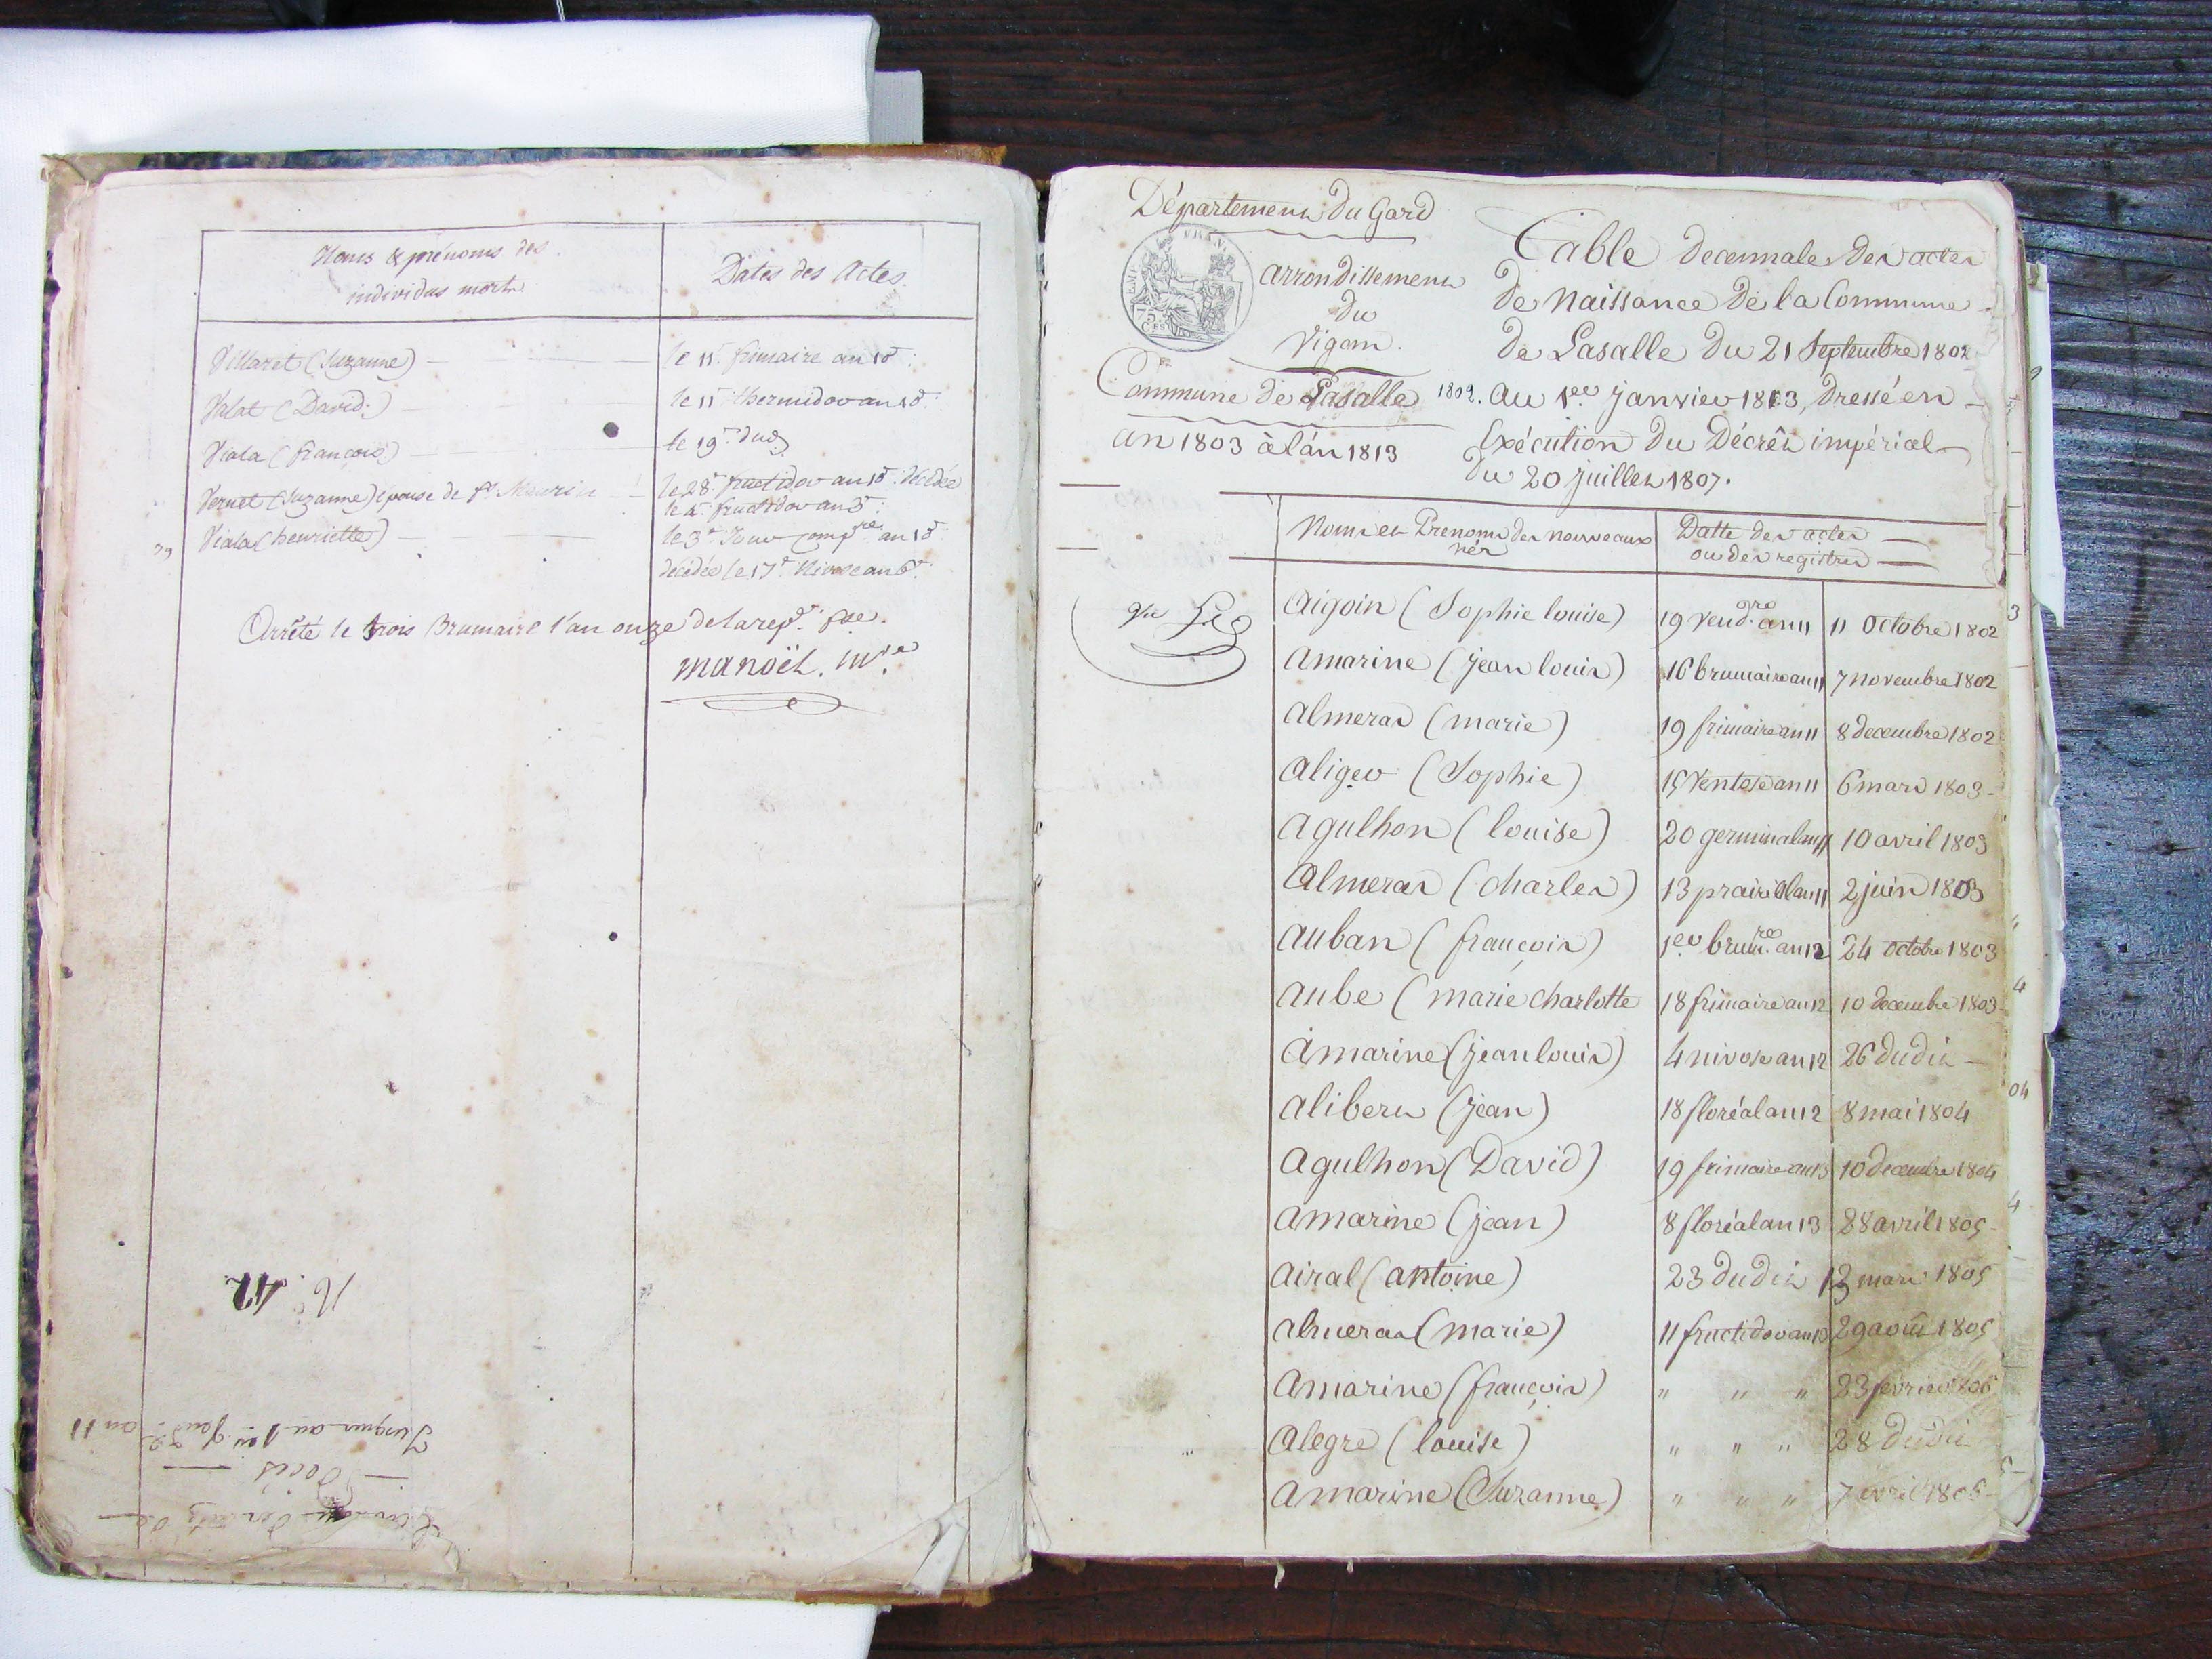 Noms & prénoms des
individus morts
Dates des Actes.
Villaret (Suzanne) le 11e. frimaire an 10e.
Valat (David.) le 11e thermidor an 10e.
Viala (François) le 19e dud.
Vernet (Suzanne) épouse de fs Maurin le 28e. fructidor an 10e. décédée
le 4e. fructidor an 3e.
Viala (henriette) le 3e Jour compre. an 10e
décédée le 17e Nivose an 6e.
Arrêté le trois Brumaire l'an onze de la repe. fse.
manoël. mre.
N.° 42
Jusqu'au 1er Vend.re an 11
Décès
Département Du Gard
arrondissement
du
Vigan.
Commune de Lasalle
an 1803 à l'an 1813
Table decennale des actes
de Naissance de la Commune
de Lasalle du 21 Septembre 1802
1802. au 1er janvier 1813, Dressé en
Exécution du Décrêt impérial
du 20 juillet 1807.
Noms et Prenoms des nouveaux
nés
Datte des actes
ou des registres
Aigoin (Sophie louise) 19 vend.re an 11 11 Octobre 1802
Amarine (jean louis) 16 brumaire an 11 7 novembre 1802
Almeras (marie) 19 frimaire an 11 8 decembre 1802
Aliger (Sophie) 15 Ventose an 11 6 mars 1803
Agulhon (louise) 20 germinal an 11 10 avril 1803
Almeras (charles) 13 prairial an 11 2 juin 1803
Auban (françois) 1er brum.re an 12 24 octobre 1803
Aube (marie charlotte 18 frimaire an 12 10 decembre 1803
Amarine (jean louis) 4 nivose an 12 26 dudit
Alibert (jean) 18 floréal an 12 8 mai 1804
Agulhon (David) 19 frimaire an 13 10 decembre 1804
Amarine (jean) 8 floréal an 13 28 avril 1805
Airal (antoine) 23 dudit 13 mars 1805
Almeras (marie) 11 fructidor an 13 29 août 1805
Amarine (françois) " " " 23 fevrier 1806
Alegre (louise) " " " 28 dudit
Amarine (Suzanne) " " " 7 avril 1806